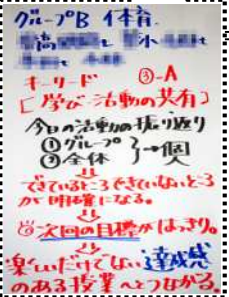 グループB 体育
高
小
キーワード ③-A
[学び・活動の共有]
今日の活動の振り返り
①グループ
②全体 }→個
できているところできていないところ
が明確になる。
次回の目標がはっきり。
楽しいだけでない達成感
のある授業へとつながる。